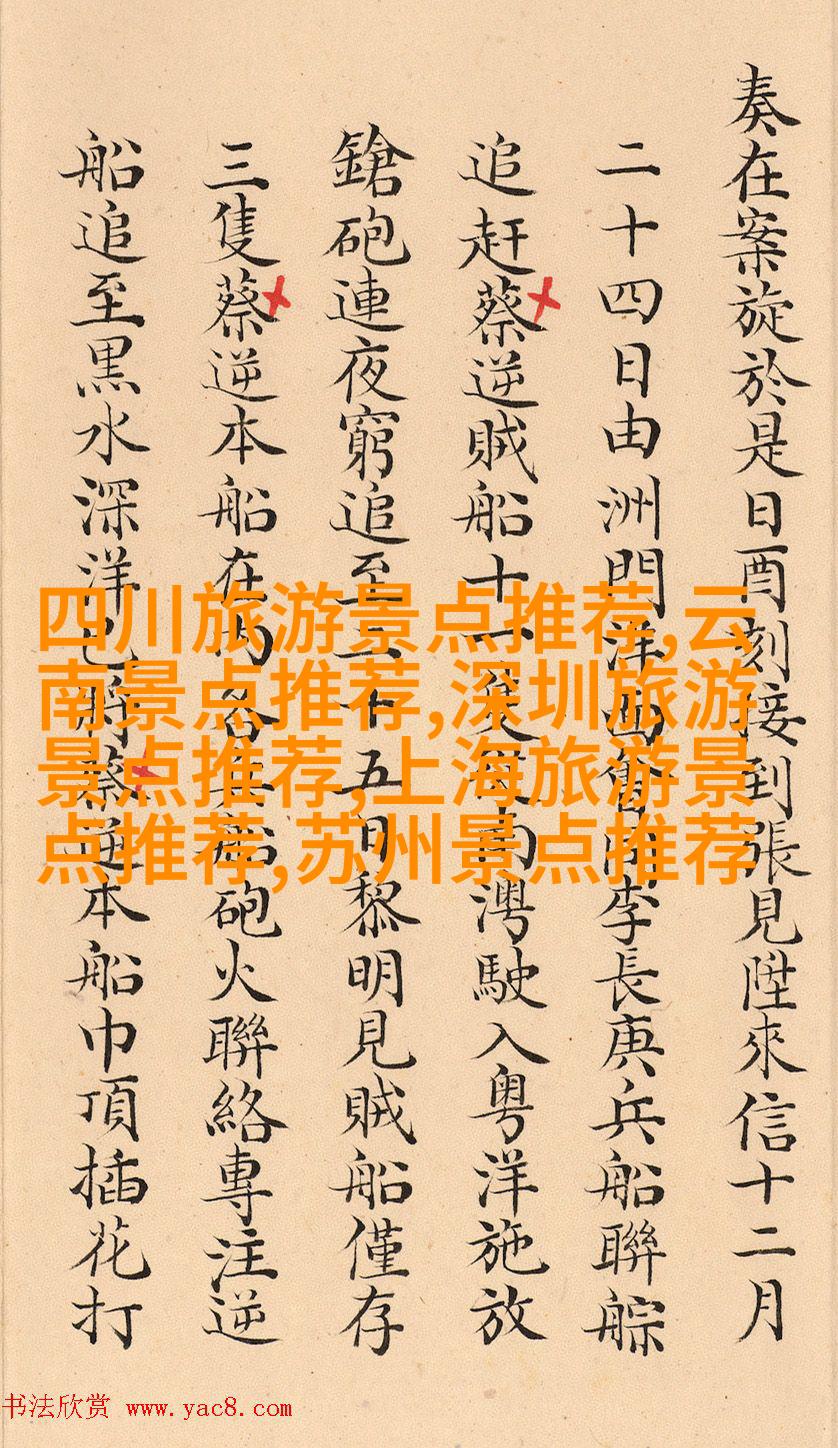 奏在案旋於是日酉刻接到張見陞來信十二月
二十四日由洲門洋面會同李長庚兵船聯䑸
追趕蔡逆賊船十一 南灣駛入粵洋施放
鎗砲連夜窮追至二十五日黎明見賊船僅存
三隻蔡逆本船在內各兵船砲火聯絡專注逆
船追至黒水深洋已將蔡逆本船巾頂插花打
四川旅游景点推荐,云
南景点推荐,深圳旅游
景点推荐,上海旅游景
点推荐,苏州景点推荐
书法欣赏 www.yac8.com